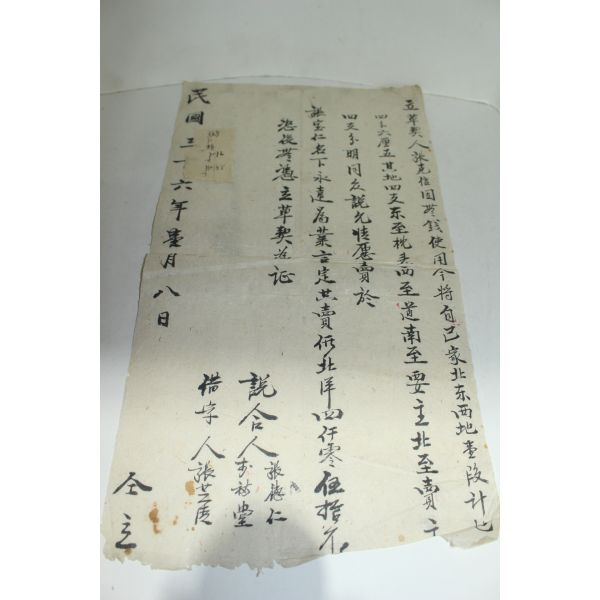 立草契人張克信因無錢使用今將自己家北东西地壹段計地
四卜六厘五其地四至东至枕头西至道南至要主北至賣主
四至分明同众說允情愿賣於
張宝仁名下永遠為業言定共賣価北洋四仟零伍拾元
恐後無憑立草契為証
說合人 張德仁
堂
借字人 張
民國三十六年壹月八日
仝立